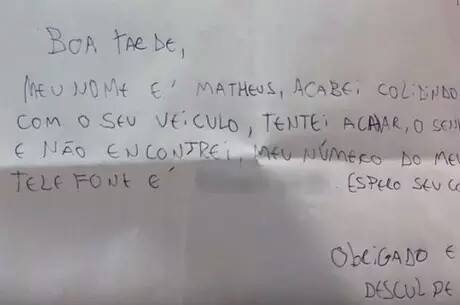 BOA TARDE,
MEU NOME E' MATHEUS, ACABEI COLIDINDO
COM O SEU VEICULO, TENTEI ACHAR, O SEN
E NÃO ENCONTREI, MEU NÚMERO DO MEU
TELEFONE E'
ESPERO SEU CO
ObRIGADO E
DESCULPE